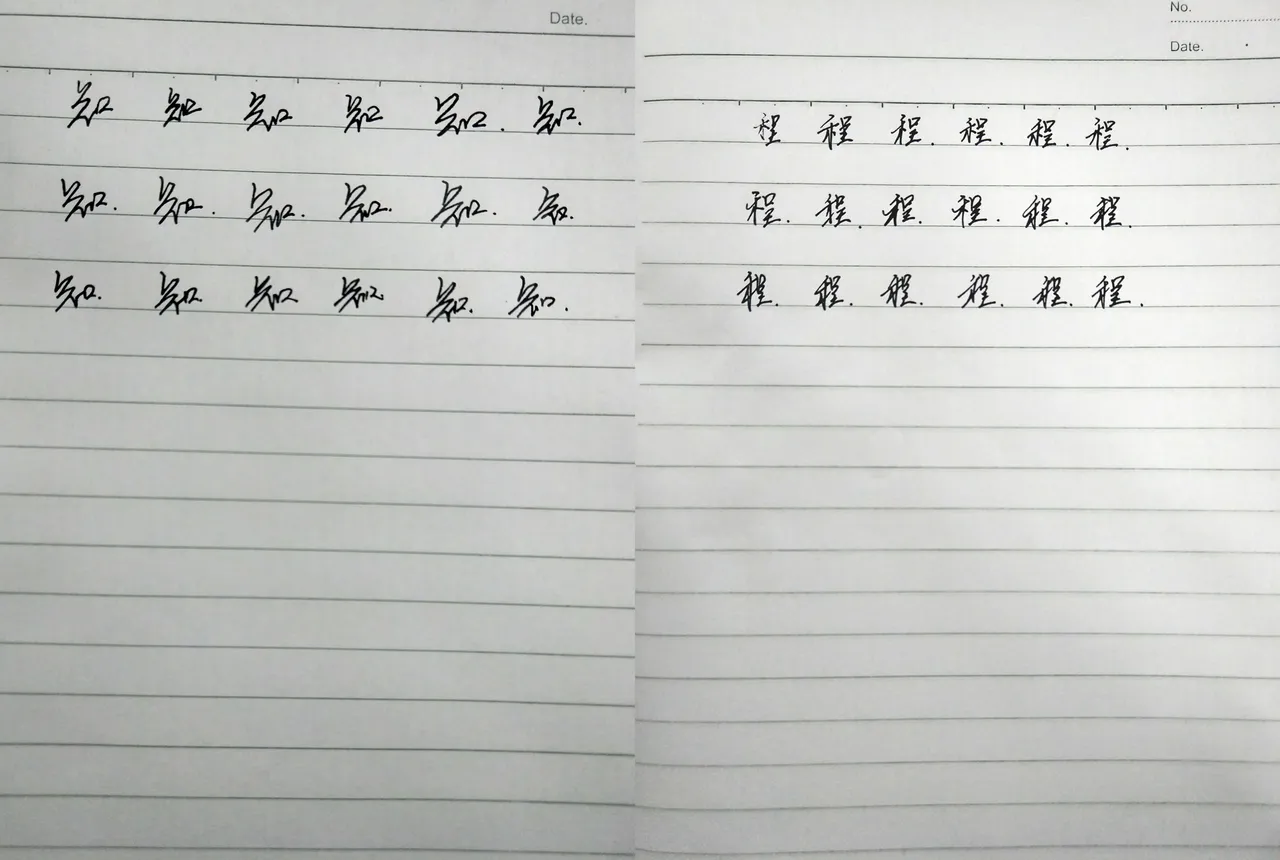 Date.
知 知 知 知 知. 知.
知. 知. 知. 知. 知. 知.
知. 知 知 知 知. 知.
No.
Date.
程 程 程. 程. 程. 程.
程. 程. 程. 程. 程. 程.
程. 程. 程. 程. 程. 程.